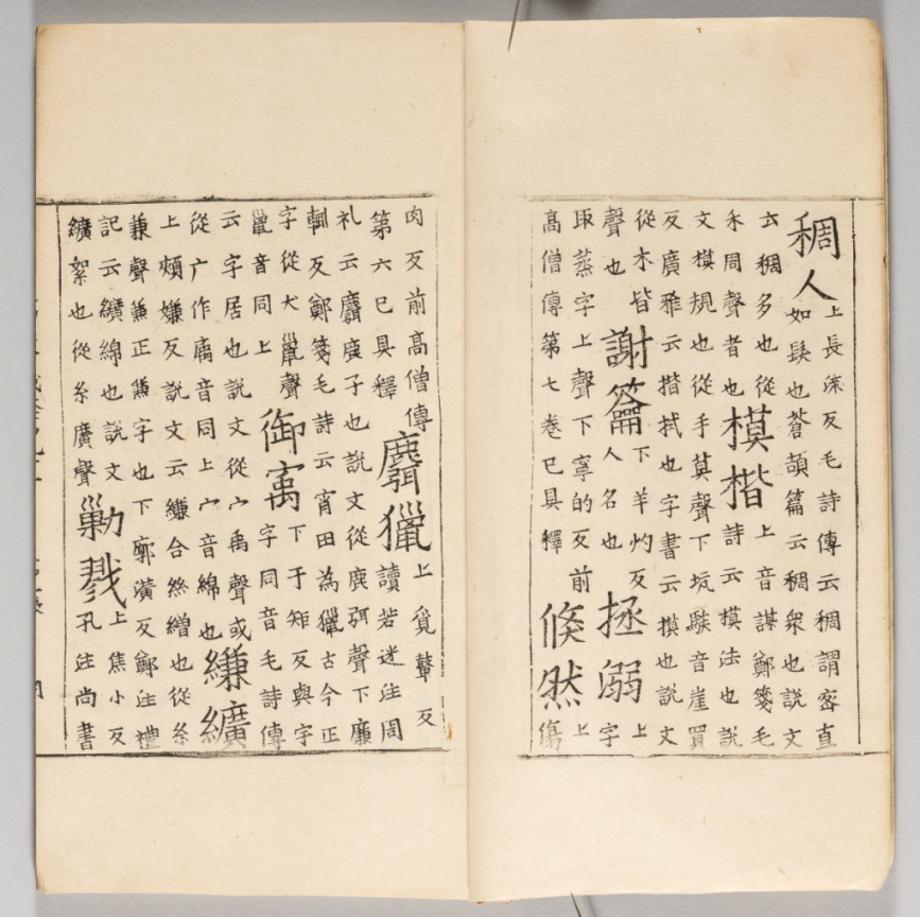 稠人
上長流反毛詩傳云稠謂密直
如髮也蒼頡篇云稠衆也說文
云稠多也從
禾周聲者也
模楷
上音謀鄭箋毛
詩云摸法也說
文摸規也從手莫聲下坑駭音崖買
反廣雅云揩拭也字書云摸也說文
從木皆
聲也
謝籥
下羊灼反
人名也
拯溺
上
字
取蒸字上聲下寧的反前
高僧傳第七卷已具釋
倐然
上
傷
肉反前高僧傳
第六已具釋
麛獵
上覓鼙反
讀若迷注周
礼云麛鹿子也說文從鹿弭聲下廉
輒反鄭箋毛詩云宵田為獵古今正
字從犬巤聲
巤音同上
御㝢
下于矩反與宇
字同音毛詩傳
云字居也說文從宀禹聲或
從广作庽音同上宀音綿也
縑纊
上頰嫌反說文云縑合絲繒也從糸
兼聲兼正兼字也下廓潢反鄭注禮
記云纊綿也說文
纊絮也從糸廣聲
勦戮
上焦小反
孔注尚書